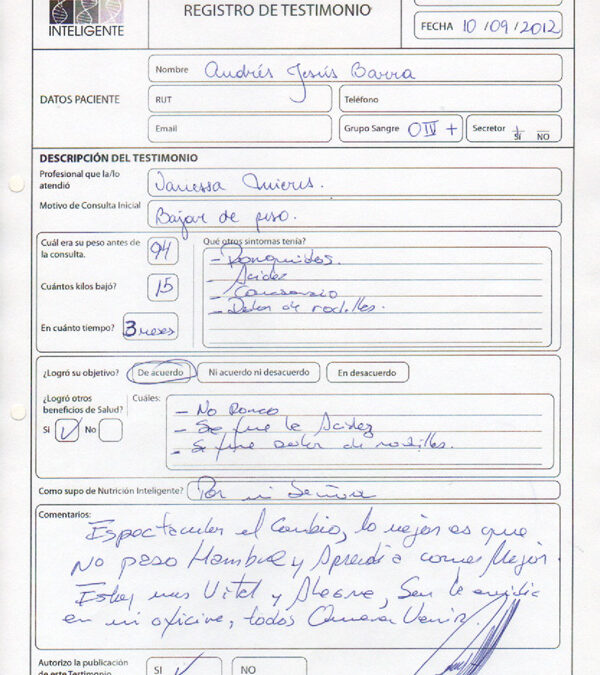 INTELIGENTE
REGISTRO DE TESTIMONIO
FECHA 10/09/2012
DATOS PACIENTE
Nombre Andrés Jesús Barra
RUT
Teléfono
Email
Grupo Sangre OIV +
Secretor + SI NO
DESCRIPCIÓN DEL TESTIMONIO
Profesional que la/lo atendió Vanessa Mieres.
Motivo de Consulta Inicial Bajar de peso.
Cuál era su peso antes de la consulta. 94
Cuántos kilos bajó? 15
En cuánto tiempo? 3 meses
Qué otros sintomas tenía?
- Ronquidos.
- Acidez
- Cansancio
- Dolor de rodillas.
¿Logró su objetivo? De acuerdo Ni acuerdo ni desacuerdo En desacuerdo
¿Logró otros beneficios de Salud? Si No
Cuáles:
- No Ronco
- Se fue la Acidez
- Se fue dolor de rodillas.
Como supo de Nutrición Inteligente? Por mi Señora
Comentarios:
Espectacular el Cambio, lo mejor es que
No paso Hambre y Aprendía comer Mejor
Estoy mas Vital y Alegre, Soy la envidia
en mi oficina, todos Quieren Venir.
Autorizo la publicación de este Testimonio SI NO